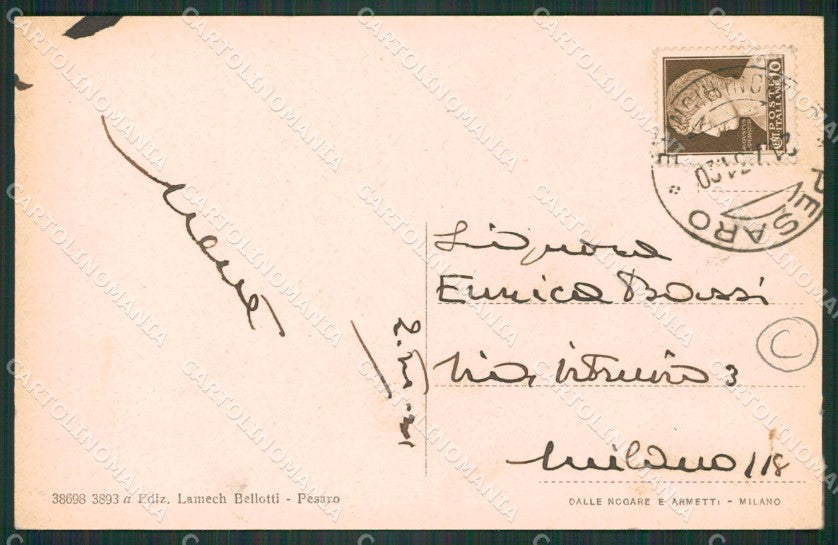 10
POSTE
ITALIANE
PESARO
Signora
Enrica Bassi
Via Vitruvio 3
Milano 118
C
38698 3893 a Ediz. Lamech Bellotti - Pesaro
DALLE NOGARE E ARMETTI - MILANO
CARTOLINOMANIA